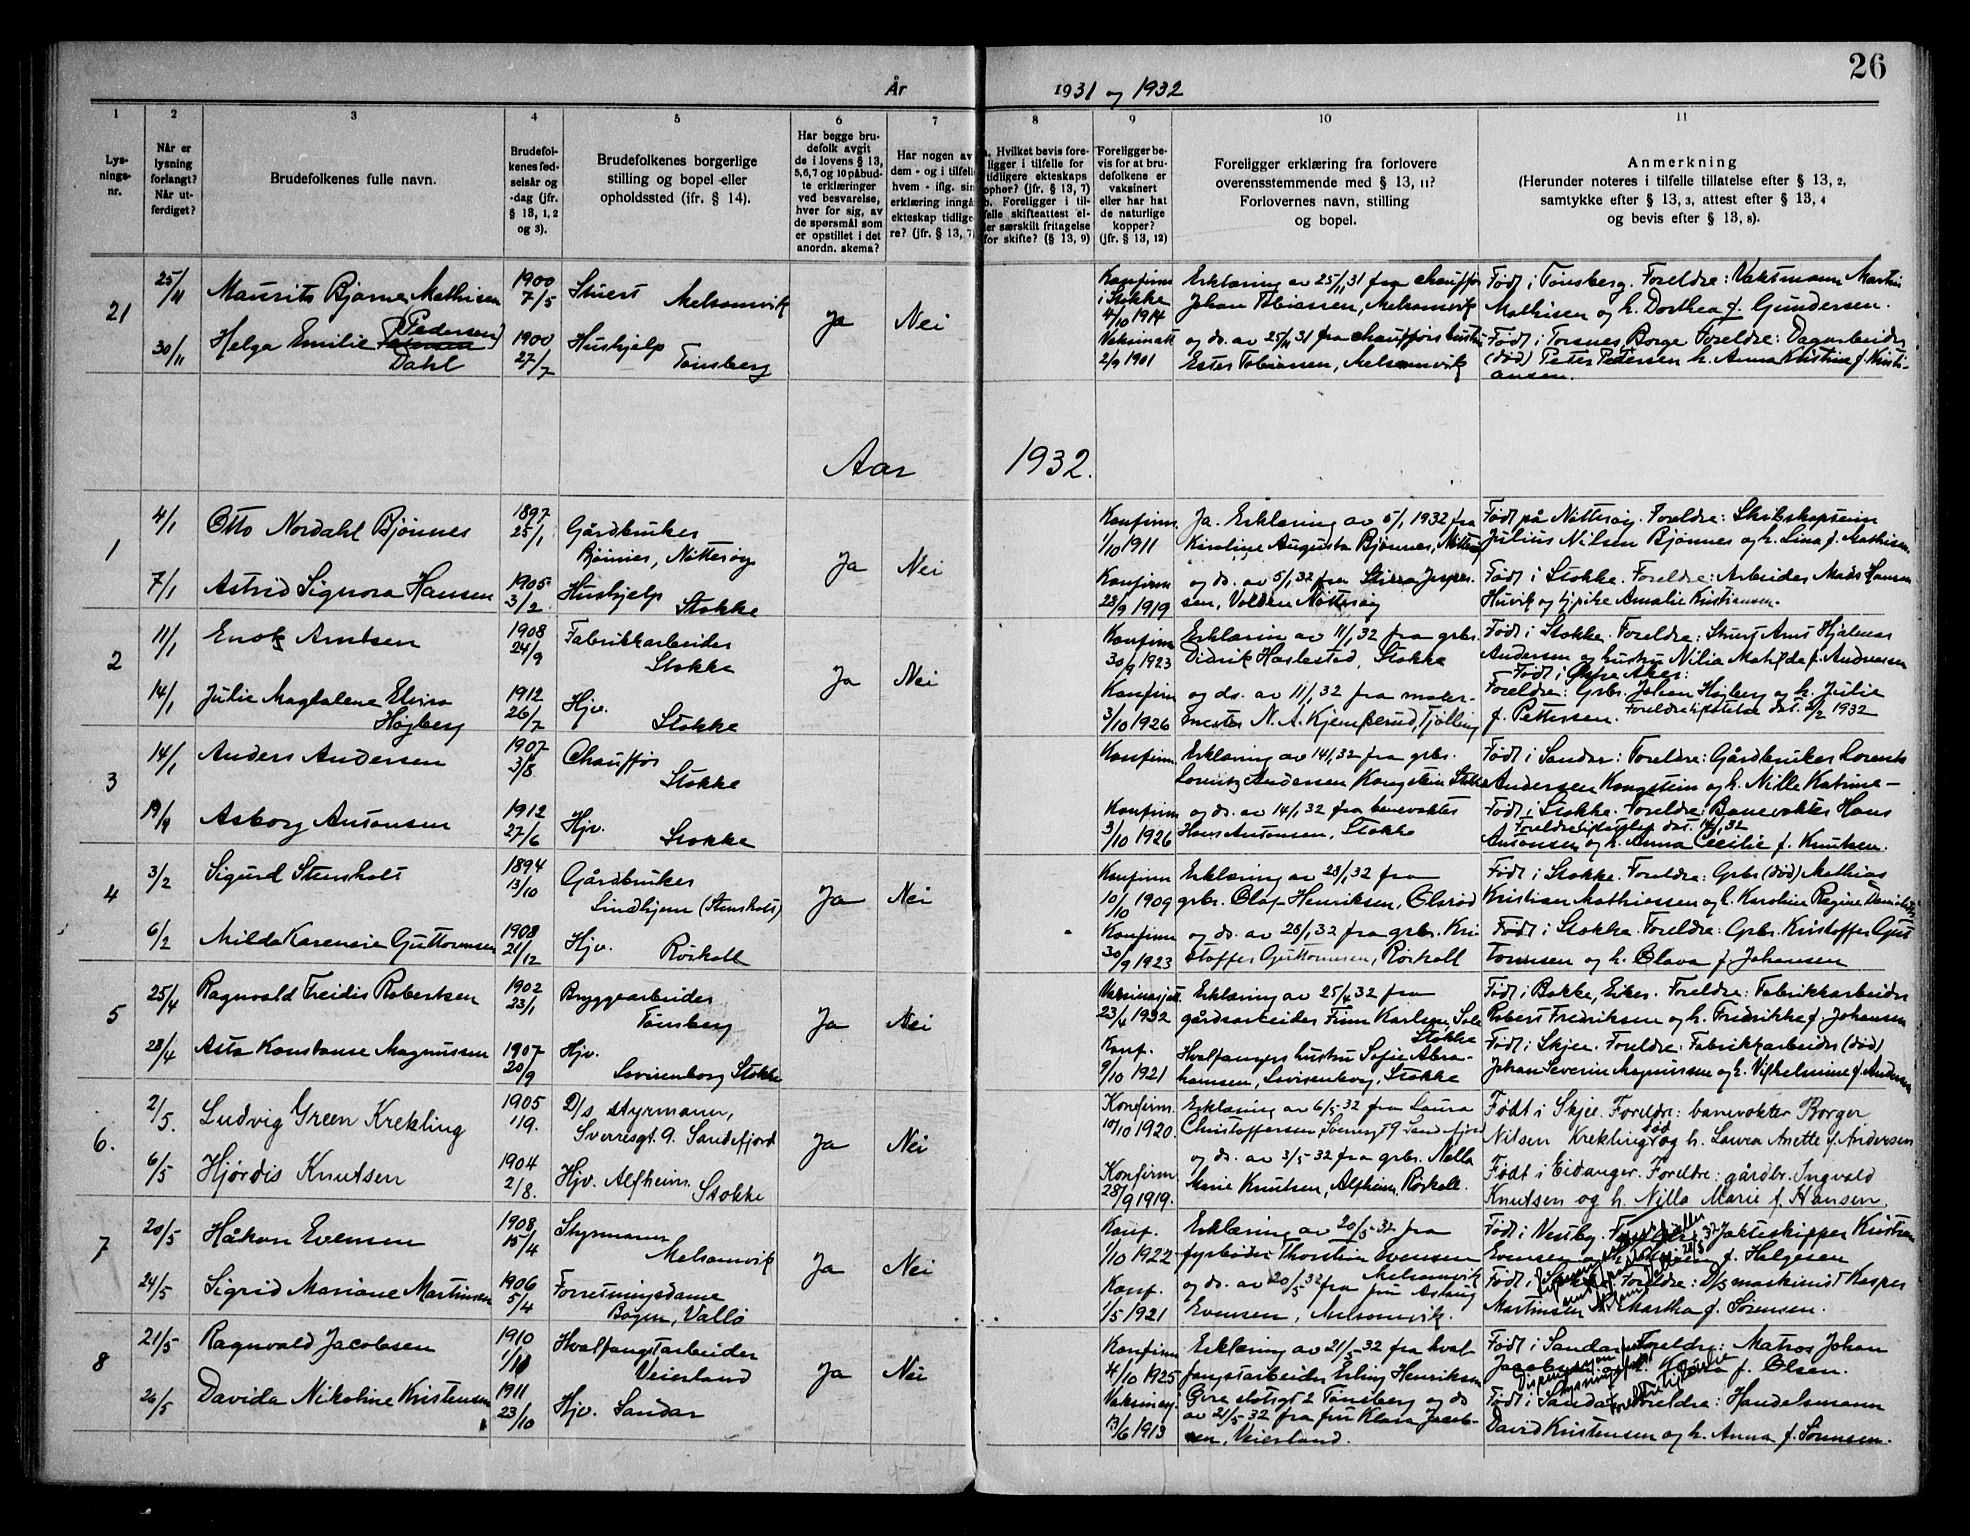 26
År 1931 og 1932
1 2 3 4 5 6 7 8 9 10 11
Lys-
nings-
nr.
Når er
lysning
forlangt?
Når ut-
ferdiget?
Brudefolkenes fulle navn.
Brudefol-
kenes fød-
selsår og
-dag (jfr.
§ 13, 1, 2
og 3).
Brudefolkenes borgerlige
stilling og bopel eller
opholdssted (jfr. § 14).
Har begge bru-
defolk avgit
de i lovens § 13,
5, 6, 7 og 10 påbud-
te erklæringer
ved besvarelse,
hver for sig, av
de spørsmål som
er opstillet i det
anordn. skema?
Har nogen av
dem - og i tilfelle
hvem - iflg. sin
erklæring inngått
ekteskap tidlige-
re? (jfr. § 13, 7)
a. Hvilket bevis fore-
ligger i tilfelle for
tidligere ekteskaps
ophør? (jfr. § 13, 7)
b. Foreligger i til-
felle skifteattest el-
ler særskilt fritagelse
for skifte? (§ 13, 9)
Foreligger be-
vis for at bru-
defolkene er
vaksinert
eller har hat
de naturlige
kopper?
(jfr. § 13, 12)
Foreligger erklæring fra forlovere
overensstemmende med § 13, 11?
Forlovernes navn, stilling
og bopel.
Anmerkning
(Herunder noteres i tilfelle tillatelse efter § 13, 2,
samtykke efter § 13, 3, attest efter § 13, 4
og bevis efter § 13, 8).
21
25/11 Maurits Bjarne Mathisen 1900 7/5 Stuert Melsomvik
Ja Nei
Konfirm. i Stokke 4/10 1914
Erklæring av 25/11 31 fra chauffør
Johan Tobiassen, Melsomvik
Født i Tønsberg. Foreldre: Vaktmann Martin
Mathisen og h. Dorthea f. Gundersen.
30/11 Helga Emilie (Pedersen)
Dahl 1900 27/7 Hushjelp Tønsberg
Vaksinatt. 2/9 1901
og ds. av 25/11 31 fra chaufførs hustru
Ester Tobiassen, Melsomvik
Født i Torsnes Borge Foreldre: Dagarbeider
(død) Peter Pedersen h. Anna Kristine f. Kristi-
ansen.
Aar 1932.
1
4/1 Otto Nordahl Bjønnes 1897 25/1 Gårdbruker
Bjønnes, Nøtterøy
Ja Nei
Konfirm 1/10 1911
Ja. Erklæring av 5/1 1932 fra
Karoline Augusta Bjønnes, Nøtterøy
Født på Nøtterøy. Foreldre: Skibskaptein
Julius Nilsen Bjønnes og h. Lina f. Mathisen.
7/1 Astrid Signora Hansen 1905 3/2 Hushjelp Stokke
Konfirm 28/9 1919
og ds. av 5/1 32 fra Jesper-
sen, Volden Nøtterøy
Født i Stokke. Foreldre: Arbeider Mads Hansen
Husvik og pike Amalie Kristiansen.
2
11/1 Enok Arntsen 1908 24/9 Fabrikkarbeider
Stokke
Ja Nei
Konfirm 30/9 1923
Erklærin av 11/1 32 fra grbr.
Didrik Haslestad, Stokke
Født i Stokke. Foreldre: Stuert Arnt Hjalmar
Andersen og hustru Nilia Matilda f. Andreassen
14/1 Julie Magdalene Elvira
Høgberg 1912 26/7 Hjv. Stokke
Konfirm 3/10 1926
og ds. av 11/1 32 fra maler-
mester N. A. Kjemperud, Tjølling
Født i Østre Aker.
Foreldre: Grbr. Johan Høgberg og h. Julie
f. Pettersen. Foreldretillatelse dat. 2/2 1932
3
14/1 Anders Andersen 1907 3/8 Chauffør
Stokke
Konfirm
Erklæring av 14/1 32 fra grbr.
Lorentz Andersen Kongstein Stokke
Født i Sandar: Foreldre: Gårdbruker Lorents
Andersen Kongstein og h. Nille Katrine -
19/9 Asborg Antonsen 1912 27/6 Hjv. Stokke
Konfirm 3/10 1926
og ds. av 14/1 32 fra banevokter
Hans Antonsen, Stokke
Født i Stokke. Foreldre: Banevokter Hans
Foreldretillatelse dat. 14/1 32
Antonsen og h. Anna Cecilie f. Knutsen.
4
3/2 Sigurd Stensholt 1894 13/10 Gårdbruker
Lindhjem (Stensholt)
Ja Nei
Konfirm 10/10 1909
Erklæring av 28/1 32 fra
grbr. Olaf Henriksen, Olsrød
Født i Stokke. Foreldre: Grbr (død) Mathias
Kristian Mathiassen og h. Karoline Regine
6/2 Milda Karensia Guttormsen 1908 21/12 Hjv. Rørkoll
Konfirm 30/9 1923
og ds. av 28/1 32 fra grbr. Kri
stoffer Guttormsen, Rørkoll
Født i Stokke. Foreldre: Grbr. Kristoffer Gut
tormsen og h. Olava f. Johansen
5
25/4 Ragnvald Freidis Robertsen 1902 23/1 Bryggearbeider
Tønsberg
Ja Nei
Vaksinasjatt. 23/4 1932
Erklæring av 25/4 32 fra
gårdsarbeider Finn Karlsen, Sole
Stokke
Født i Bakke, Eiker. Foreldre: Fabrikkarbeider
Robert Fredriksen og h. Fredrikke f. Johansen
28/4 Asta Konstanse Magnussen 1907 20/9 Hjv.
Lovisenborg Stokke
Konf. 9/10 1921
Hvalfangers hustru Sofie Abra-
hamsen, Lovisenborg, Stokke
Født i Skjee. Foreldre: Fabrikkarbeider (død)
Johan Severin Magnussen og h. Vilhelmine f. Andersen
6.
2/5. Ludvig Green Krekling 1905 1/9. D/s styrmann,
Sverresgt. 9. Sandefjord
Ja Nei
Konfirm. 10/10 1920.
Erklæring av 6/5-32 fra Laura
Christoffersen, 9 Sandefjord
Født i Skjee. Foreldre: banevokter Borger
Nilsen Krekling død og h. Laura Anette f. Andersen
6/5 Hjørdis Knutsen 1904 2/8. Hjv. Alfheim
Stokke
Konfirm. 28/9 1919.
og ds. av 3/5-32 fra grbr. Nella
Marie Knutsen, Alfheim, Rørkoll.
Født i Eidanger. Foreldre: gårdbr. Ingvald
Knutsen og h. Nilla Marie f. Hansen.
7
20/5 Håkon Evensen 1908 15/4 Styrmann
Melsomvik
Ja Nei
Konf. 1/10 1922
Erklæring av 20/5-32 fra
fyrbøder Thorstein Evensen
Melsomvik
Født i Vestby. Jakteskipper Kristian
Evensen f. Helgesen
24/5 Sigrid Mariane Martinsen 1906 5/4 Forretningsdame
Bogen, Vallø
Konf. 1/5 1921
og ds. av 20/5-32 fra fru Aslaug
Evensen, Melsomvik.
Født i Foreldre: D/s maskinist Kasper
Martinsen h. Martha f. Sørensen.
8
21/5 Ragnvald Jacobsen 1910 1/11 Hvalfangstarbeider
Veierland
Ja Nei
Konfirm 4/10 1925
Erklæring av 21/5-32 fra hval
fangstarbeider Erling Henriksen
Født i Sandar Foreldre: Matros Johan
Jacobsen f. Olsen.
26/5 Davida Nikoline Kristensen 1911 23/10 Hjv. Sandar
Vaksinasj. 13/6 1913
Øvre slotsgt 2 Tønsberg og ds
av 21/5-32 fra fru Klara Jacob-
sen, Veierland.
Født i Sandar Foreldre: Handelsmann
David Kristensen og h. Anna f. Sørensen.